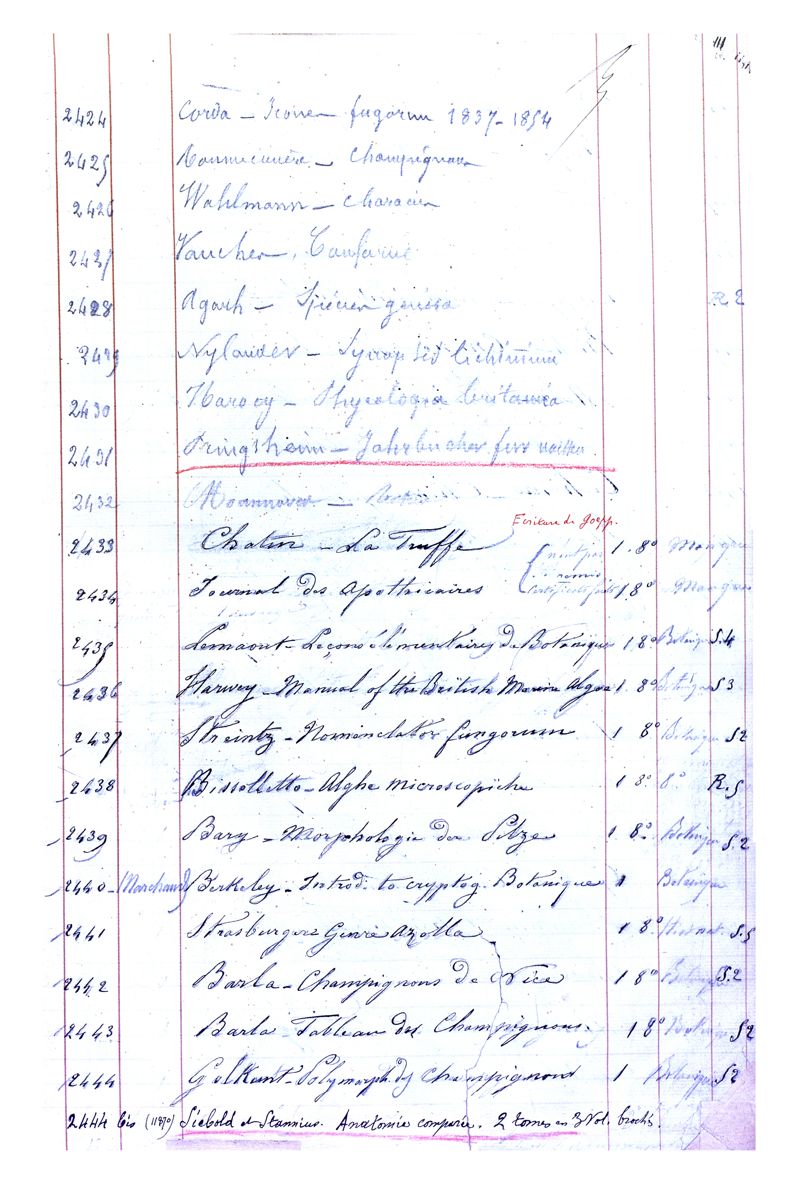 2424 Corda - Icones fugorum 1837-1854
2425 Champignons
2426 Wahlmann - characées
2427 Vaucher,
2428 Agarh - Species genera R 2
2429 Nylander - Synop
2430 Phycologia britanica
2431 Pringsheim - Jahrbücher furr
2432
Ecriture de Goepp.
2433 Chatin - La Truffe 1. 8° Mangue
2434 Journal des apothicaires n'ont pas 1 8° Mangue
2435 Lemaout - Leçons élémentaires de Botanique 1 8° Botanique S.4
2436 Harwey - Manual of the British Marine Algae 1 8° Botanique S 3
2437 Streintz - Nomenclator fungorum 1 8° Botanique S 2
2438 Bissolletto - Alghe microscopiche 1 8° 8° R. 5
2439 Bary - Morphologie der Pilze 1 8° Botanique S.2
2440 - (Marchand) Berkeley - Introd. to cryptog. Botanique 1 Botanique
2441 Strasburger Genre Azolla 1 8° S.5
2442 Barla - Champignons de Nice 1 8° Botanique S.2
2443 Barla - Tableau des Champignons. 1 8° Botanique S 2
2444 Polymorph. des champignons 1 Botanique S 2
2444 bis (11870) Siebold et Stannius. Anatomie comparée. 2 tomes en 3 Vol. brochés.